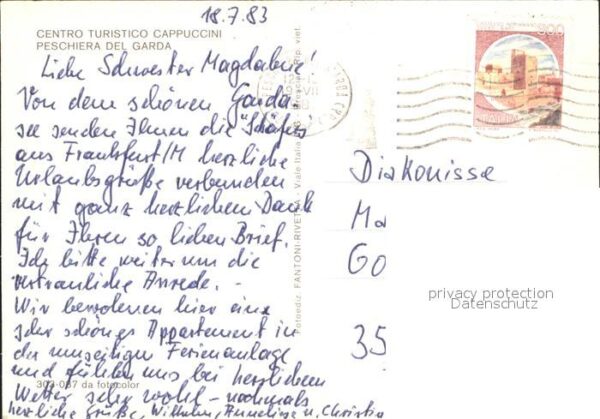 18.7.83
CENTRO TURISTICO CAPPUCCINI
PESCHIERA DEL GARDA
Liebe Schwester Magdalene!
Von dem schönen Garda-
see senden Ihnen die "Schäfers
aus Frankfurt/M herzliche
Urlaubsgrüße verbunden
mit ganz herzlichem Dank
für Ihren so lieben Brief.
Ich bitte weiter um die
vertrauliche Anrede. -
Wir bewohnen hier eine
sehr schönes Appartement in
der umseitigen Ferienanlage
und fühlen uns bei herrlichem
Wetter sehr wohl - nochmals
herzliche Grüße, Wilhelm, Annelise u. Christia
303-087 da fotocolor
Fotoediz. FANTONI-RIVETTA - Viale Italia
Rip. viet.
Diakonisse
Ma
Go
35
privacy protection
Datenschutz